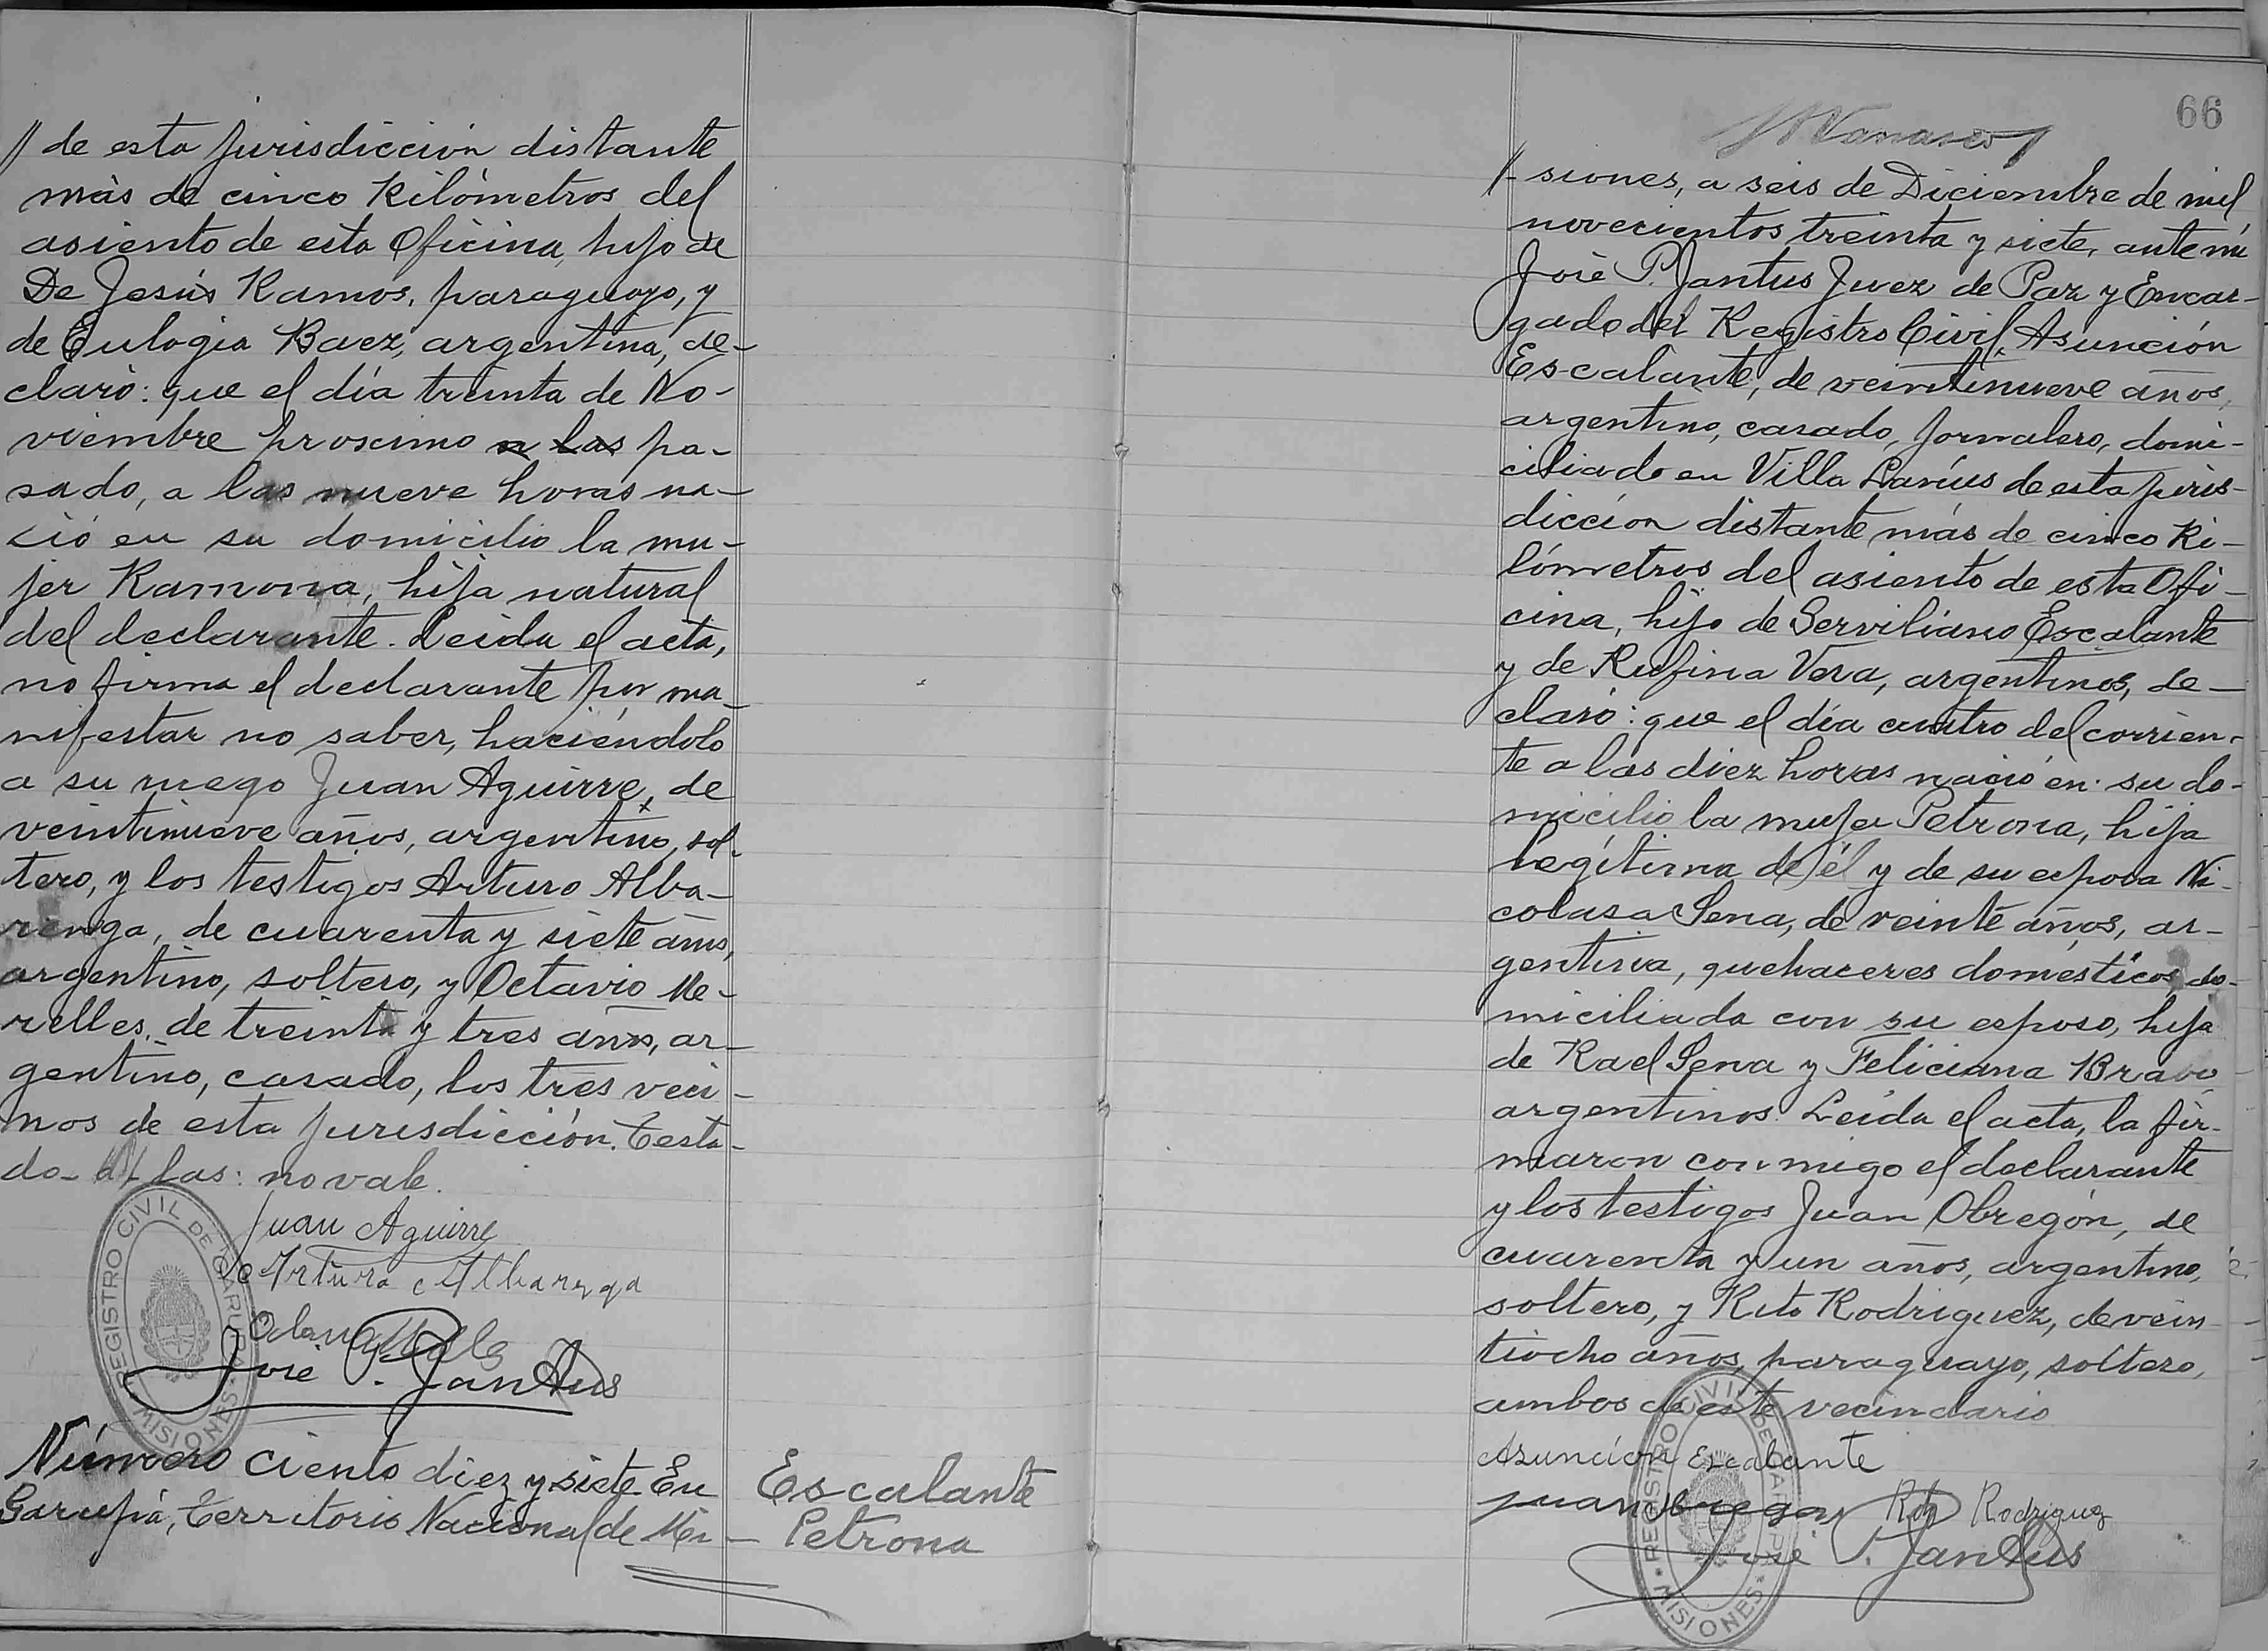 // de esta jurisdicción distante
más de cinco Kilómetros del
asiento de esta Oficina, hijo de
De Jesús Ramos, paraguayo, y
de Eulogia Baez, argentina, de-
claró: que el día treinta de No-
viembre proscimo a las pa-
sado, a las nueve horas na-
ció en su domicilio la mu-
jer Ramona, hija natural
del declarante. Leida el acta,
no firma el declarante por ma-
nifestar no saber, haciéndolo
a su ruego Juan Aguirre, de
veintinueve años, argentino, sol-
tero, y los testigos Arturo Alba-
renga, de cuarenta y siete años,
argentino, soltero, y Octavio Me-
relles, de treinta y tres años, ar-
gentino, casado, los tres veci-
nos de esta jurisdicción. Testa-
do- a las: no vale.
Juan Aguirre
Arturo Albarenga
José P. Jantus
REGISTRO CIVIL DE GARUPA
MISIONES
Número ciento diez y siete En
Garupá, Territorio Nacional de Mi-
Escalante
Petrona
66
//- siones, a seis de Diciembre de mil
novecientos treinta y siete, ante mi
José P. Jantus Juez de Paz y Encar-
gado del Registro Civil, Asunción
Escalante, de veintinueve años,
argentino, casado, jornalero, domi-
ciliado en Villa Lanús de esta juris-
dicción distante más de cinco Ki-
lómetros del asiento de esta Ofi-
cina, hijo de Serviliano Escalante
y de Rufina Vera, argentinos, de-
claró: que el día cuatro del corrien-
te a las diez horas nació en su do-
micilio la mujer Petrona, hija
legítima de él y de su esposa Ni-
colasa Sena, de veinte años, ar-
gentina, quehaceres domésticos, do-
miciliada con su esposo, hija
de Rael Sena y Feliciana Bravo
argentinos. Leída el acta, la fir-
maron conmigo el declarante
y los testigos Juan Obregón, de
cuarenta y un años, argentino,
soltero, y Rito Rodriguez, de vein-
tiocho años, paraguayo, soltero,
ambos de este vecindario
Asunción Escalante
Juan Obregon Rito Rodriguez
José P. Jantus
REGISTRO CIVIL DE GARUPA
MISIONES